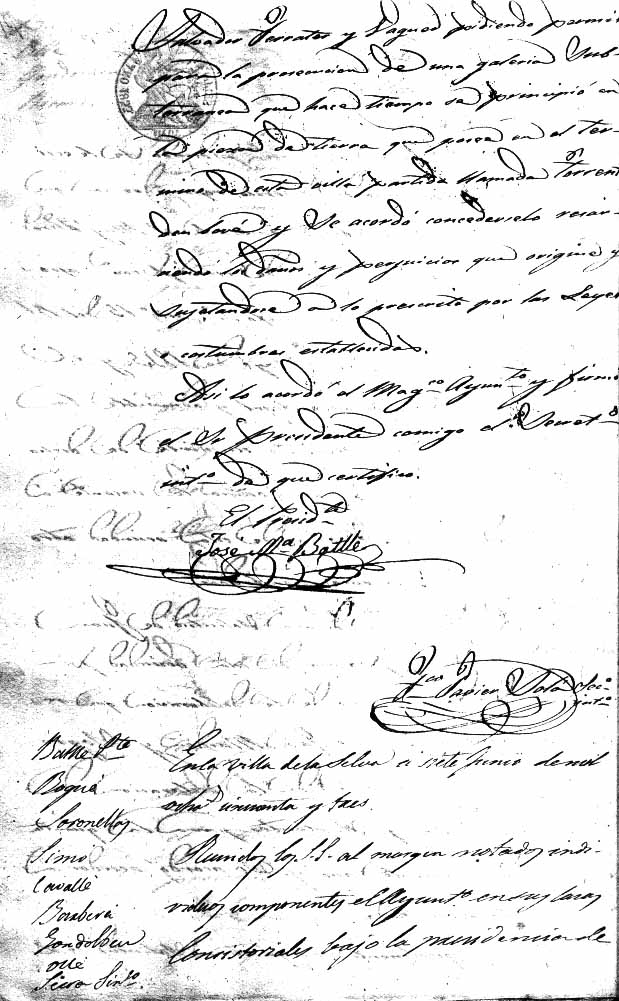 Salvador Ferrater y Pagues pidiendo permiso
para la prosecucion de una galeria sub-
terranea que hace tiempo se principió en
la pieza de tierra que posee en el ter-
mino de esta villa partida llamada torrent
den y Se acordó concederselo resar-
ciendo los daños y perjuicios que origine y
sujetandose a lo prescrito por las Leyes
o costumbres establecidas.
Asi lo acordó el Mag.co Ayunt.to y firmó
el Sr Presidente comigo el Secret.o
int.o de que certifico.
El Presid.te
José M.a Batlle
Fco Xavier Solá Sec.o
int.o
Batlle P.te
Bogué
Soronellas
Simó
Cavallé
Barberá
Gondolbeu
ollé
Sin.co
En la villa de la Selva a siete Junio de mil
ocho.s cincuenta y tres.
Reunidos los S.S. al margen notados indi-
viduos componentes el Ayunt.o en sus Casas
Consistoriales bajo la presidencia de